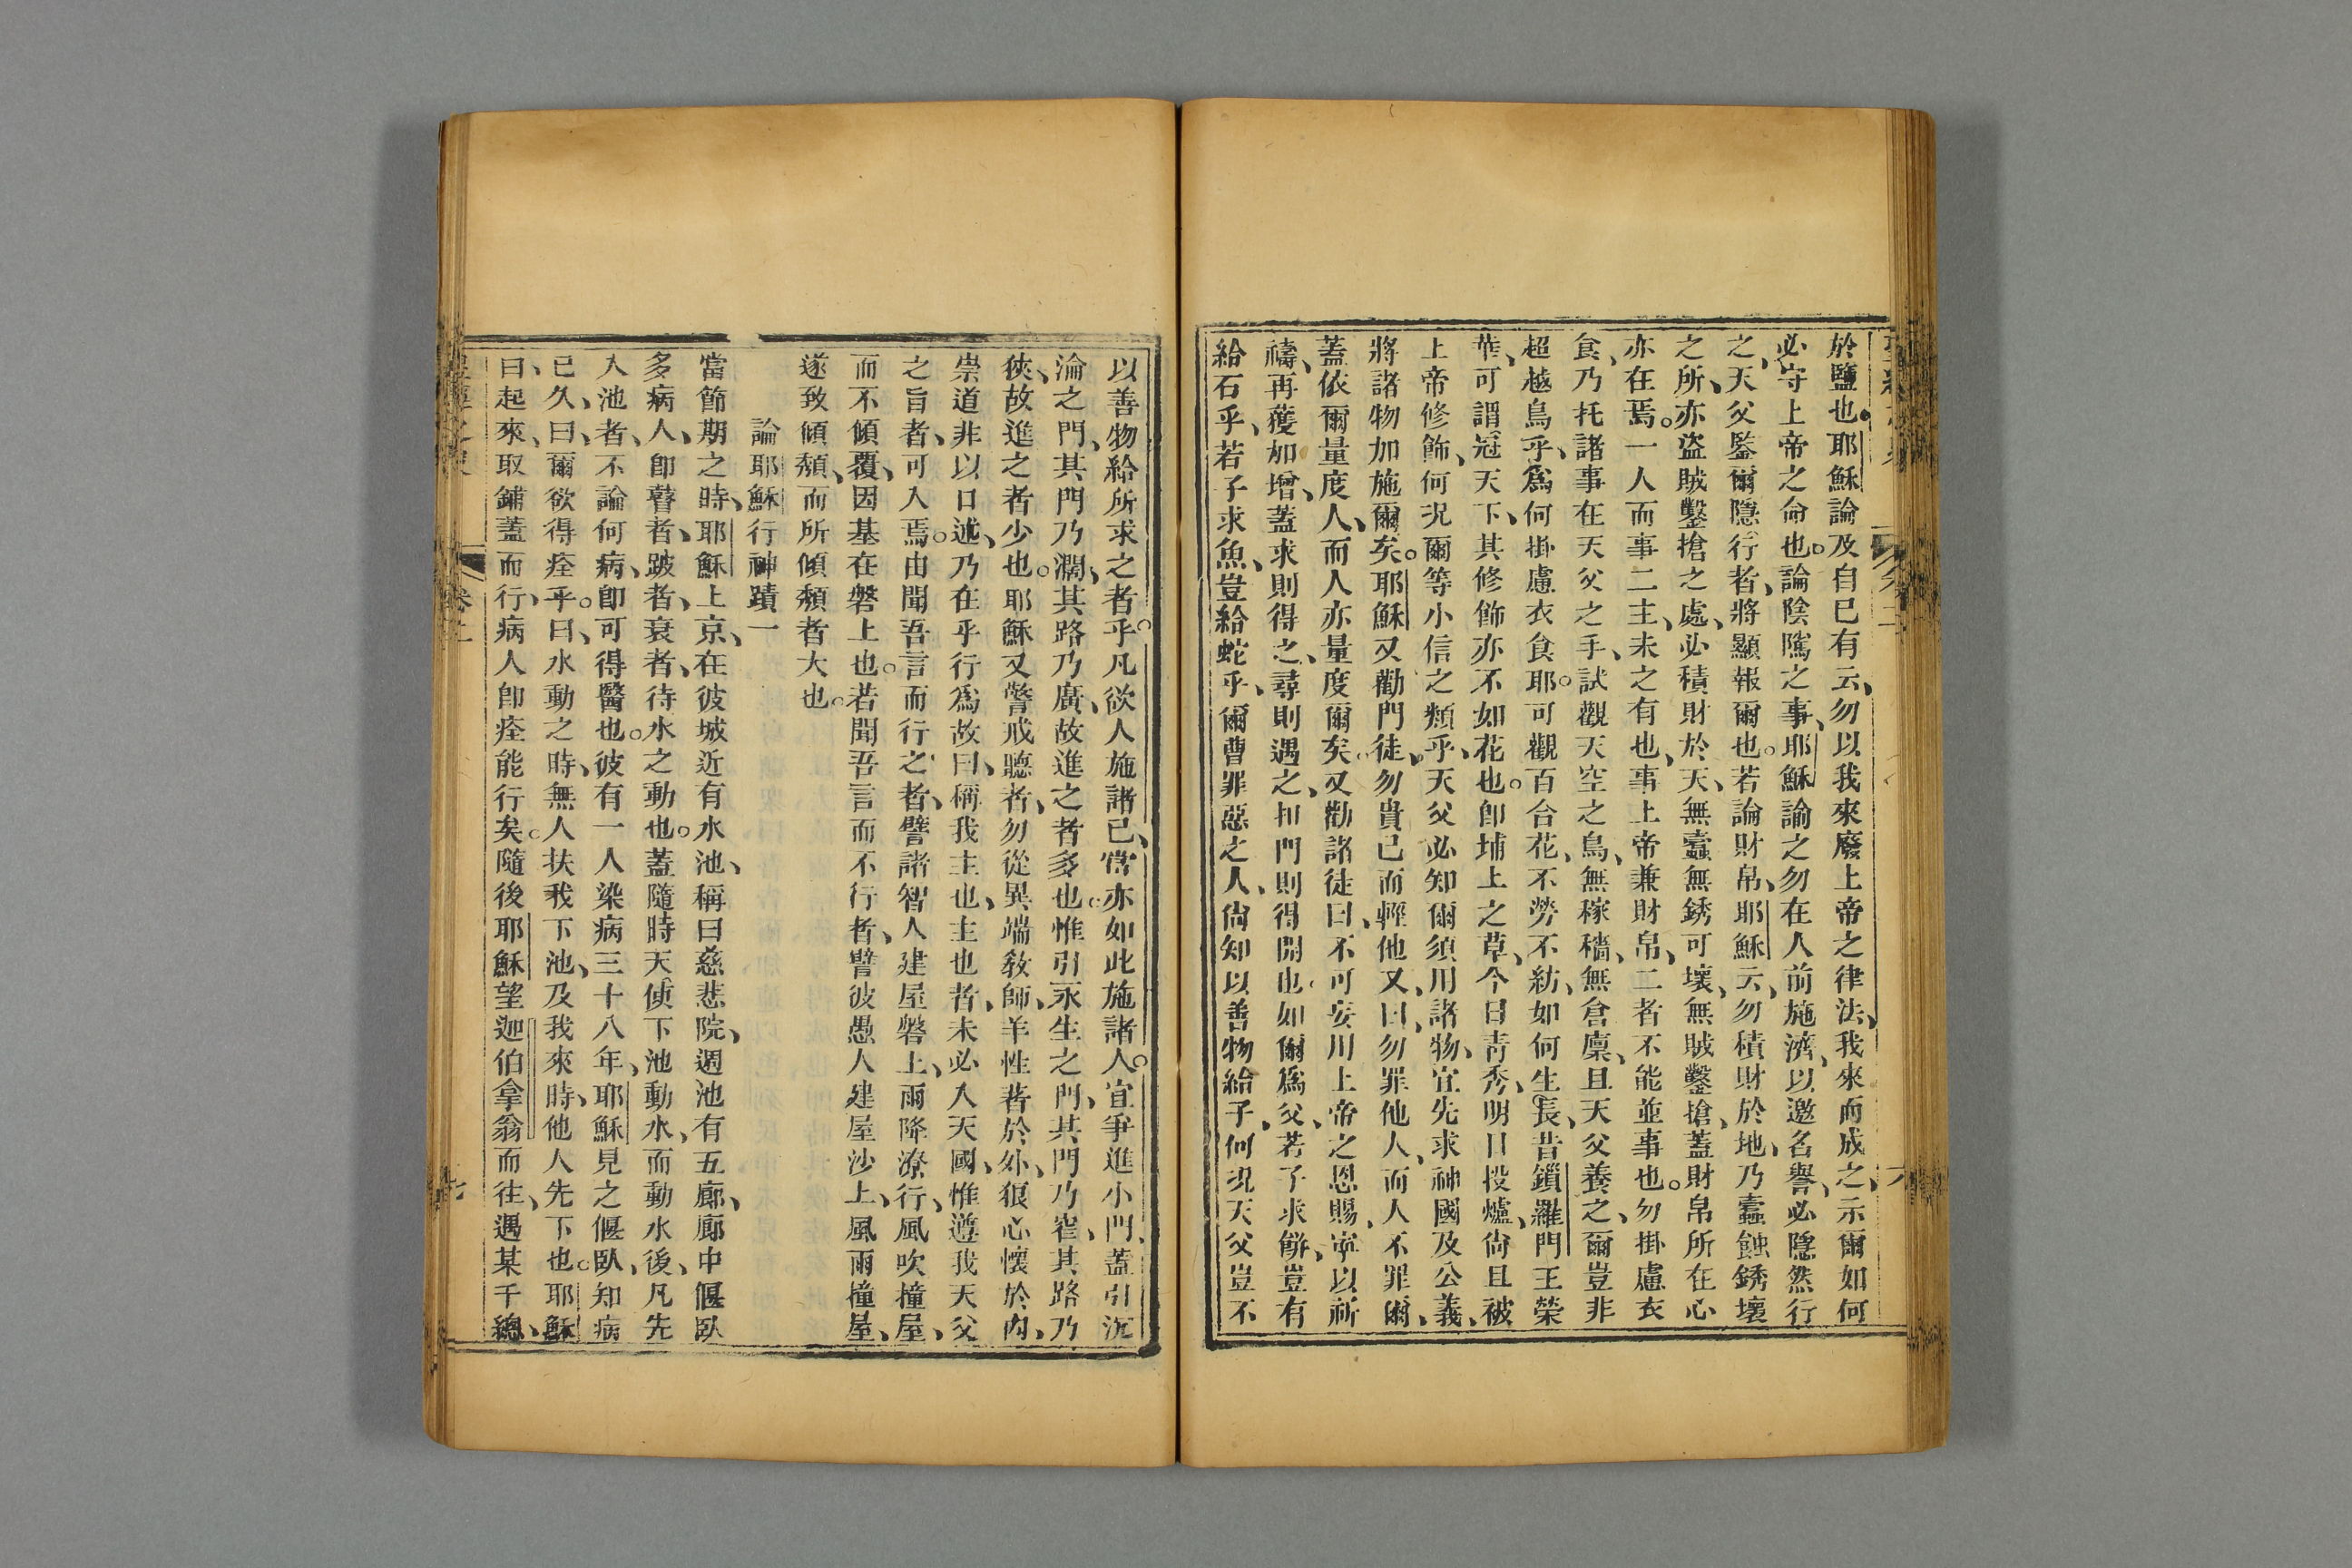 於鹽也。耶穌論及自己有云、勿以我來廢上帝之律法、我來而成之、示爾如何
必守上帝之命也。論陰隲之事、耶穌論之勿在人前施濟、以邀名譽、必隱然行
之、天父鑒爾隱行者、將顯報爾也。若論財帛、耶穌云、勿積財於地、乃蠹蝕銹壞
之所、亦盜賊鑿搶之處、必積財於天、無蠹無銹可壞、無賊鑿搶、蓋財帛所在心
亦在焉。一人而事二主、未之有也、事上帝兼財帛、二者不能並事也。勿掛慮衣
食、乃托諸事在天父之手、試觀天空之鳥、無稼穡、無倉廩、且天父養之、爾豈非
超越鳥乎、爲何掛慮衣食耶。可觀百合花、不勞不紡、如何生長、昔鎖羅門王榮
華、可謂冠天下、其修飾亦不如花也。卽埔上之草、今日青秀、明日投爐、尙且被
上帝修飾、何況爾等小信之類乎、天父必知爾須用諸物、宜先求神國及公義、
將諸物加施爾矣。耶穌又勸門徒、勿貴己而輕他、又曰、勿罪他人、而人不罪爾、
蓋依爾量度人、而人亦量度爾矣。又勸諸徒曰、不可妄用上帝之恩賜、寧以祈
禱、再獲加增、蓋求則得之、尋則遇之、扣門則得開也。如爾爲父、若子求餅、豈有
給石乎、若子求魚、豈給蛇乎、爾曹罪惡之人、尙知以善物給子、何況天父豈不
以善物給所求之者乎。凡欲人施諸己、當亦如此施諸人。宜爭進小門、蓋引沉
淪之門、其門乃濶、其路乃廣、故進之者多也。惟引永生之門、其門乃窄、其路乃
狹、故進之者少也。耶穌又警戒聽者、勿從異端教師、羊性著於外、狠心懷於內、
崇道非以口述、乃在乎行爲、故曰、稱我主也、主也者、未必入天國、惟遵我天父
之旨者、可入焉。由聞吾言而行之者、譬諸智人建屋磐上、雨降潦行、風吹撞屋、
而不傾覆、因基在磐上也。若聞吾言而不行者、譬彼愚人建屋沙上、風雨撞屋、
遂致傾頹、而所傾頹者大也。
論耶穌行神蹟一
當節期之時、耶穌上京、在彼城近有水池、稱曰慈悲院、週池有五廊、廊中偃臥
多病人、卽瞽者、跛者、衰者、待水之動也。蓋隨時天使下池動水、而動水後、凡先
入池者、不論何病、卽可得醫也。彼有一人染病三十八年、耶穌見之偃臥、知病
已久、曰、爾欲得痊乎。曰、水動之時、無人扶我下池、及我來時、他人先下也。耶穌
曰、起來、取鋪蓋而行、病人卽痊能行矣。隨後耶穌望迦伯拿翁而往、遇某千總、